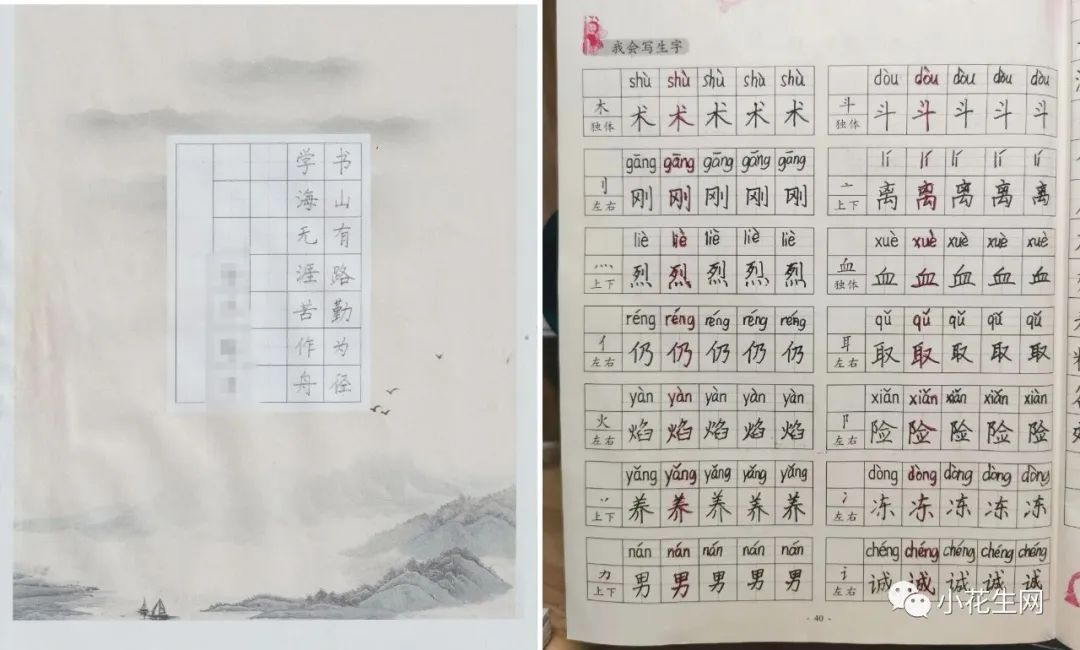 书山有路勤为径
学海无涯苦作舟
我会写生字
shù shù shù shù shù
木 独体 术 术 术 术 术
dǒu dǒu dǒu dǒu dǒu
斗 独体 斗 斗 斗 斗 斗
gāng gāng gāng gāng gāng
刂 左右 刚 刚 刚 刚 刚
lí lí lí lí lí
亠 上下 离 离 离 离 离
liè liè liè liè liè
灬 上下 烈 烈 烈 烈 烈
xuè xuè xuè xuè xuè
血 独体 血 血 血 血 血
réng réng réng réng réng
亻 左右 仍 仍 仍 仍 仍
qǔ qǔ qǔ qǔ qǔ
耳 左右 取 取 取 取 取
yàn yàn yàn yàn yàn
火 左右 焰 焰 焰 焰 焰
xiǎn xiǎn xiǎn xiǎn xiǎn
阝 左右 险 险 险 险 险
yǎng yǎng yǎng yǎng yǎng
丷 上下 养 养 养 养 养
dòng dòng dòng dòng dòng
冫 左右 冻 冻 冻 冻 冻
nán nán nán nán nán
力 上下 男 男 男 男 男
chéng chéng chéng chéng chéng
讠 左右 诚 诚 诚 诚 诚
· 40 ·
小花生网